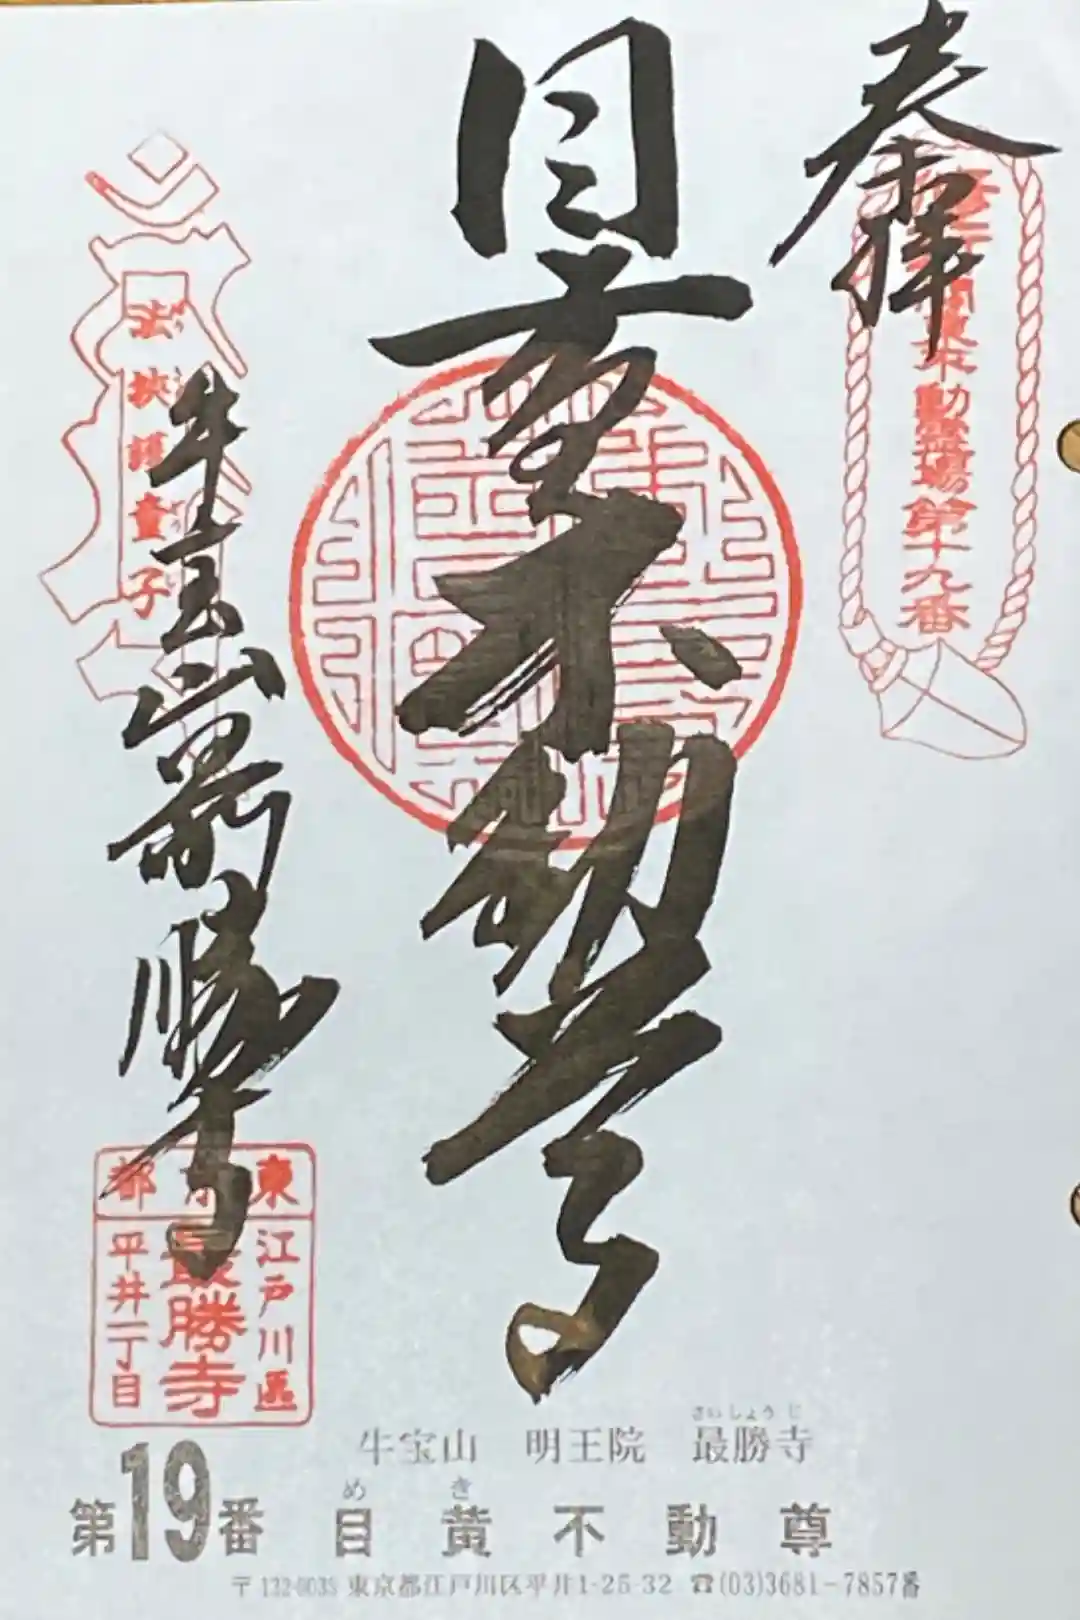 奉拝
関東不動霊場第十九番
目黄不動尊
牛宝山最勝寺
法挾護童子
東京都
江戸川区
最勝寺
平井一丁目
牛宝山 明王院 最勝寺
さいしょうじ
第19番 目黄不動尊
めき
〒132-0035 東京都江戸川区平井1-25-32 ☎(03)3681-7857番